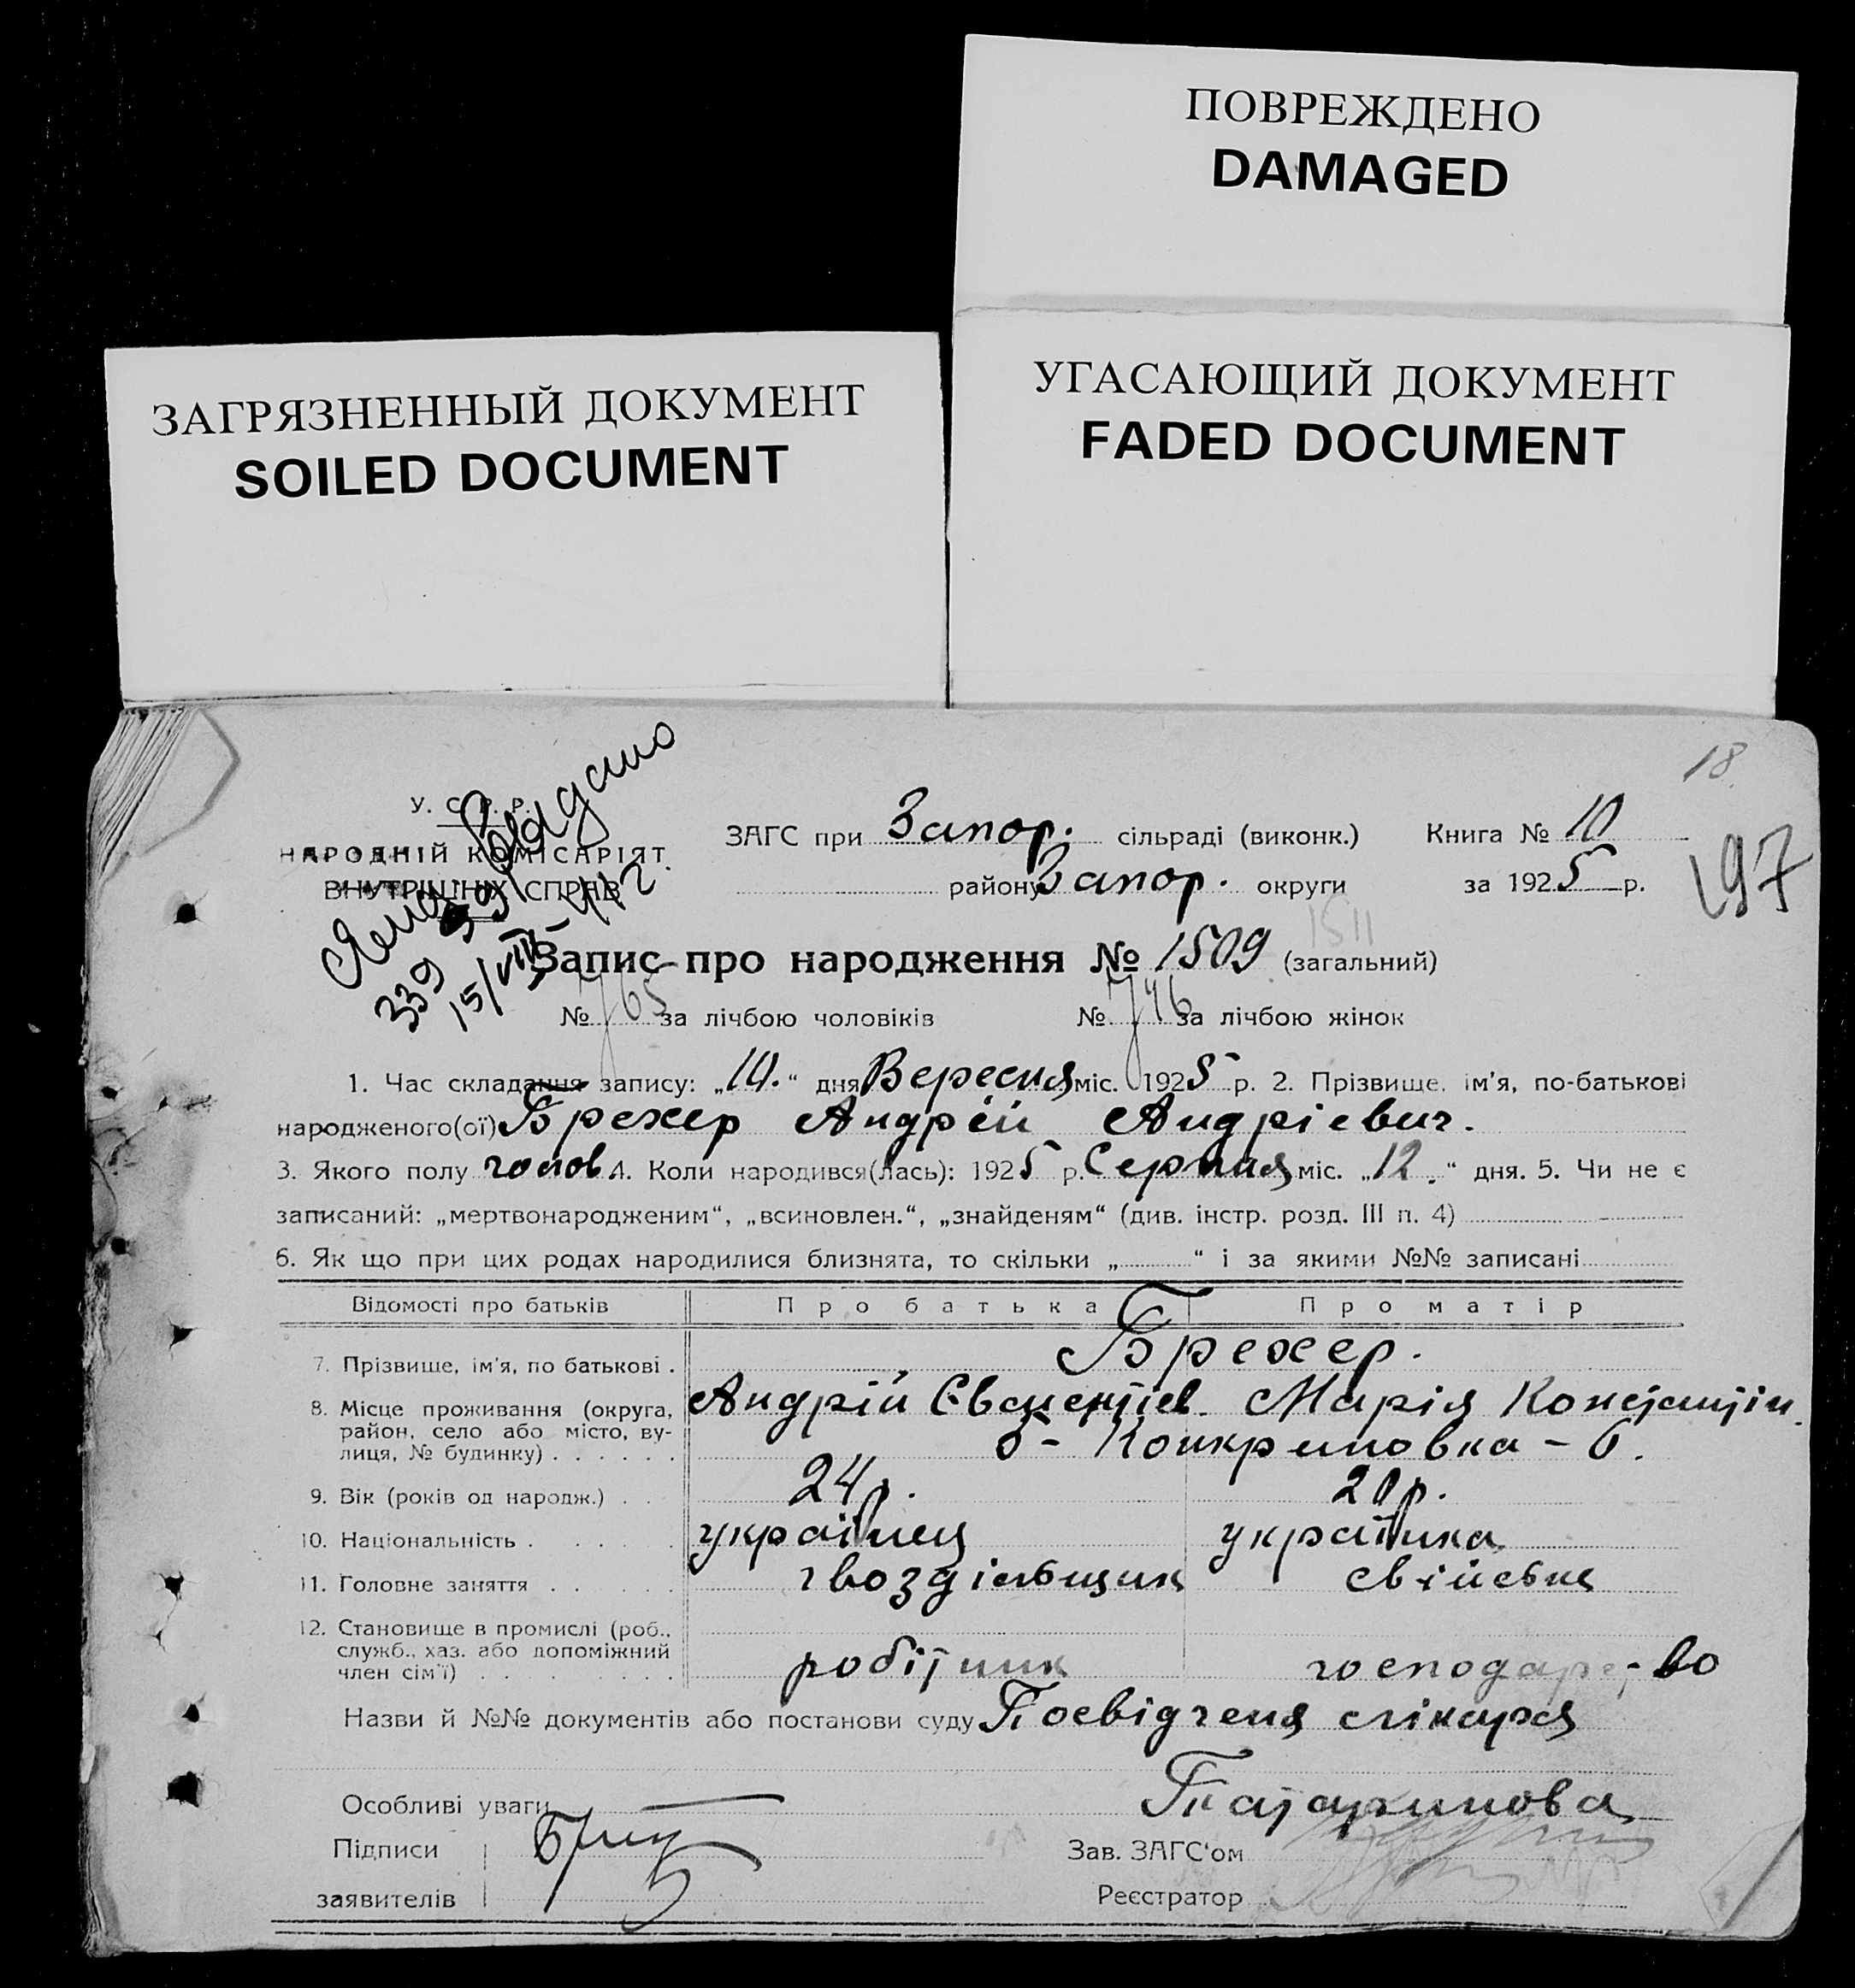 ПОВРЕЖДЕНО
DAMAGED
ЗАГРЯЗНЕННЫЙ ДОКУМЕНТ
SOILED DOCUMENT
УГАСАЮЩИЙ ДОКУМЕНТ
FADED DOCUMENT
18
197
У. С. Р. Р.
НАРОДНІЙ КОМІСАРІЯТ
ВНУТРІШНІХ СПРАВ
видано
339
15/VIII-41г.
ЗАГС при Запор. сільраді (виконк.) Книга № 10
району Запор. округи за 1925 р.
1511
Запис про народження № 1509 (загальний)
№ 765 за лічбою чоловіків № 746 за лічбою жінок
1. Час складання запису: „10.“ дня Вересня міс. 1925 р. 2. Прізвище, ім'я, по-батькові
народженого(ої) Брехер Андрій Андрієвич.
3. Якого полу чолов. 4. Коли народився(лась): 1925 р. Серпня міс. „12.“ дня. 5. Чи не є
записаний: „мертвонародженим“, „всиновлен.“, „знайденям“ (див. інстр. розд. III п. 4)
6. Як що при цих родах народилися близнята, то скільки „ “ і за якими №№ записані
Відомості про батьків Про батька Про матір
7. Прізвище, ім'я, по батькові . Брехер.
8. Місце проживання (округа, район, село або місто, вулиця, № будинку) . . . . . .
Андрій Марія Константін.
9. Вік (років од народж.) . . 24 р. 20 р.
10. Національність . . . . . українец українка
11. Головне заняття . . . . . гвоздільщик свійське
12. Становище в промислі (роб.,
служб., хаз. або допоміжний
член сім'ї) . . . . . . робітник господар-во
Назви й №№ документів або постанови суду Посвідченя лікаря
Татаринова
Особливі уваги —
Підписи
заявителів
Зав. ЗАГС'ом
Реєстратор